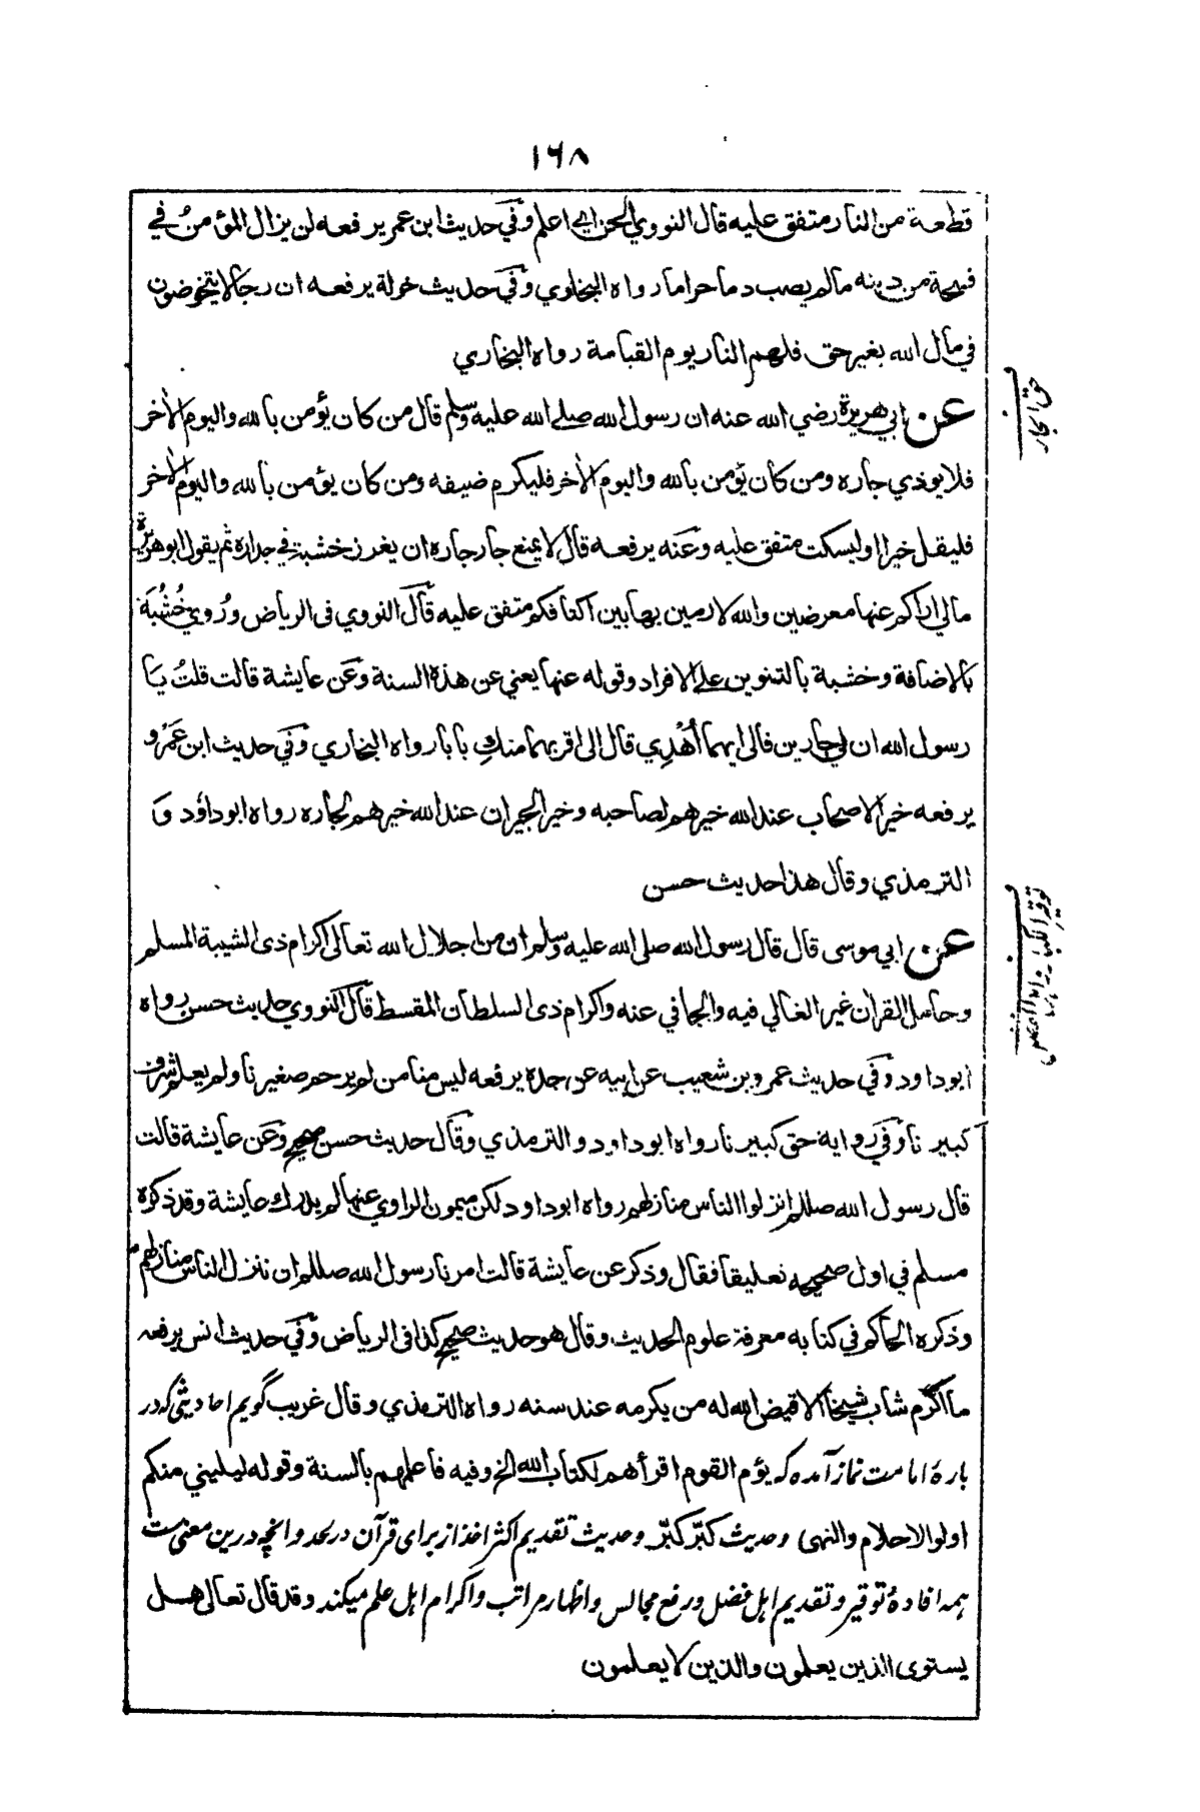 ١٦٨
قطعة من النار متفق عليه قال النووي الحن اي اعلم وفي حديث ابن عمر يرفعه لن يزال المؤمن في
فسحة من دينه مالم يصب دما حراما رواه البخاري وفي حديث خولة يرفعه ان رجالا يتخوضون
في مال الله بغير حق فلهم النار يوم القيامة رواه البخاري
عن ابي هريرة رضي الله عنه ان رسول الله صلى الله عليه وسلم قال من كان يؤمن بالله واليوم الاخر
فلا يوذي جاره ومن كان يؤمن بالله واليوم الاخر فليكرم ضيفه ومن كان يؤمن بالله واليوم الاخر
فليقل خيرا او ليسكت متفق عليه وعنه يرفعه قال لا يمنع جار جاره ان يغرز خشبة في جداره ثم يقول ابو هريرة
مالي اراكم عنها معرضين والله لارمين بها بين اكتافكم متفق عليه قال النووي في الرياض ورُوي خُشُبَهُ
بالاضافة وخشبة بالتنوين على الافراد وقوله عنها يعني عن هذه السنة وعن عايشة قالت قلتُ يا
رسول الله ان لي جارين فالى ايهما أُهْدِي قال الى اقربهما منكِ بابا رواه البخاري وفي حديث ابن عَمْرو
يرفعه خير الاصحاب عند الله خيرهم لصاحبه وخير الجيران عند الله خيرهم لجاره رواه ابوداؤد و
الترمذي وقال هذا حديث حسن
عن ابي موسى قال قال رسول الله صلى الله عليه وسلم ان من اجلال الله تعالى اكرام ذى الشيبة المسلم
وحامل القران غير الغالي فيه والجافي عنه واكرام ذى السلطان المقسط قال النووي حديث حسن رواه
ابوداود وفي حديث عمرو بن شعيب عن ابيه عن جده يرفعه ليس منا من لم يرحم صغيرنا ولم يعلم شرف
كبيرنا وفي رواية حق كبيرنا رواه ابوداود والترمذي وقال حديث حسن صحيح وعن عايشة قالت
قال رسول الله صللم انزلوا الناس منازلهم رواه ابوداود لكن ميمون الراوي عنها لم يدرك عايشة وقد ذكره
مسلم في اول صحيحه تعليقا فقال وذكر عن عايشة قالت امرنا رسول الله صللم ان ننزل الناس منازلهم
وذكره الحاكم في كتابه معرفة علوم الحديث وقال هو حديث صحيح كذا فى الرياض وفي حديث انس يرفعه
ما اكرم شاب شيخا الا قيض الله له من يكرمه عند سنه رواه الترمذي وقال غريب گويم احاديثى كه در
بارۀ امامت نماز آمده كه يؤم القوم اقرأهم لكتاب الله الخ وفيه فاعلمهم بالسنة وقوله ليليني منكم
اولوا الاحلام والنهى وحديث كبّر كبّر وحديث تقديم اكثر اخذ از براى قرآن در لحد وانچه درين معنى ست
همه افادۀ توقير وتقديم اهل فضل ورفع مجالس واظهار مراتب واكرام اهل علم ميكند وقد قال تعالى هل
يستوى الذين يعلمون والذين لا يعلمون
حق الجار